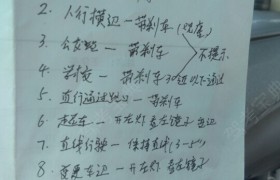 2. 人行横道 — 带刹车(踩底)
3. 公交站 — 带刹车 不提示
4. 学校 — 带刹车30迈以下通过
5. 直行通过路口 — 带刹车
6. 超车 — 开左灯 看左镜子
7. 直线行驶 — 保持直线(3-5")
8. 变更车道 — 开左灯 看左镜子